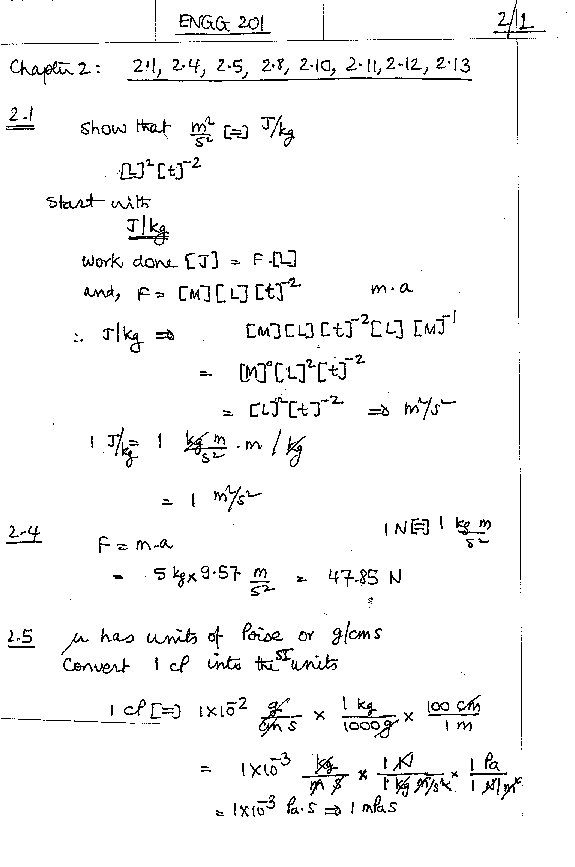 ENGG 201 2/1
Chapter 2: 2.1, 2.4, 2.5, 2.8, 2.10, 2.11, 2.12, 2.13
2.1 Show that m²/s² [=] J/kg
[L]²[t]⁻²
Start with
J/kg
work done [J] = F.[L]
and, F = [M][L][t]⁻² m.a
∴ J/kg ⇒ [M][L][t]⁻²[L][M]⁻¹
= [M]⁰[L]²[t]⁻²
= [L]²[t]⁻² ⇒ m²/s²
1 J/kg = 1 kg m/s² . m / kg
= 1 m²/s²
2.4 F = m.a 1 N [=] 1 kg m/s²
= 5 kg x 9.57 m/s² = 47.85 N
2.5 μ has units of Poise or g/cms
Convert 1 cP into the SI units
1 cP [=] 1x10⁻² g/cm s x 1 kg/1000g x 100 cm/1 m
= 1x10⁻³ kg/m s x 1 N/1 kg m/s² x 1 Pa/1 N/m²
= 1x10⁻³ Pa.s ⇒ 1 mPas